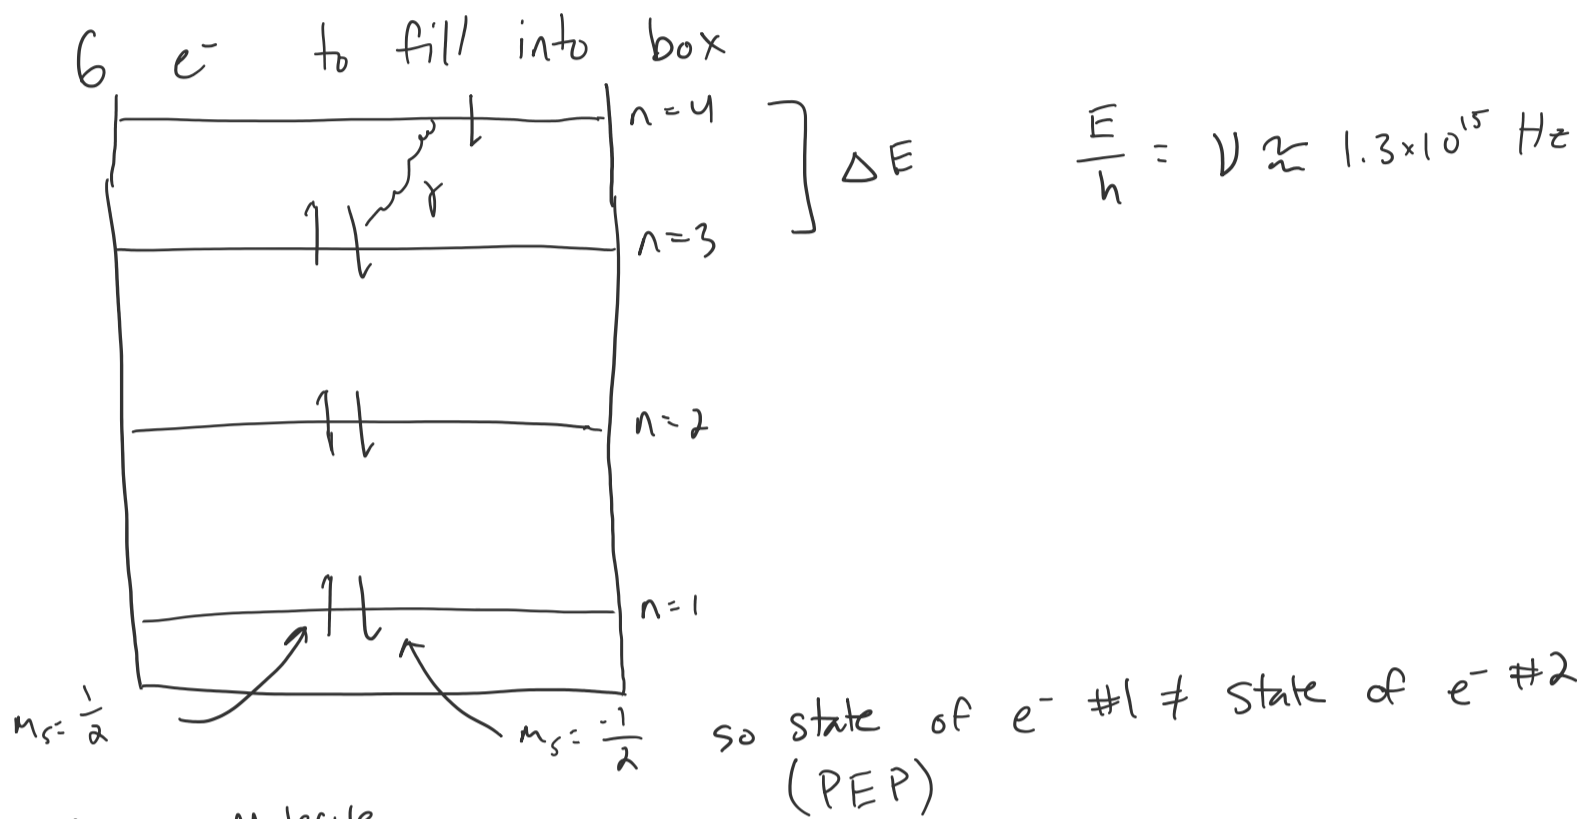 6 e⁻ to fill into box
n=4
ΔE
E/h = ν ≈ 1.3×10¹⁵ Hz
γ
n=3
n=2
n=1
mₛ= 1/2
mₛ= -1/2
so state of e⁻ #1 ≠ state of e⁻ #2
(PEP)